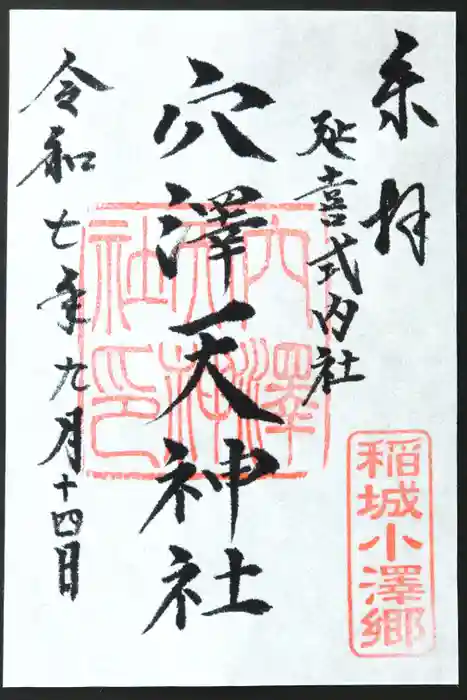 奉拝
延喜式内社
穴澤天神社
令和七年九月十四日
穴澤天神社印
稲城小澤郷